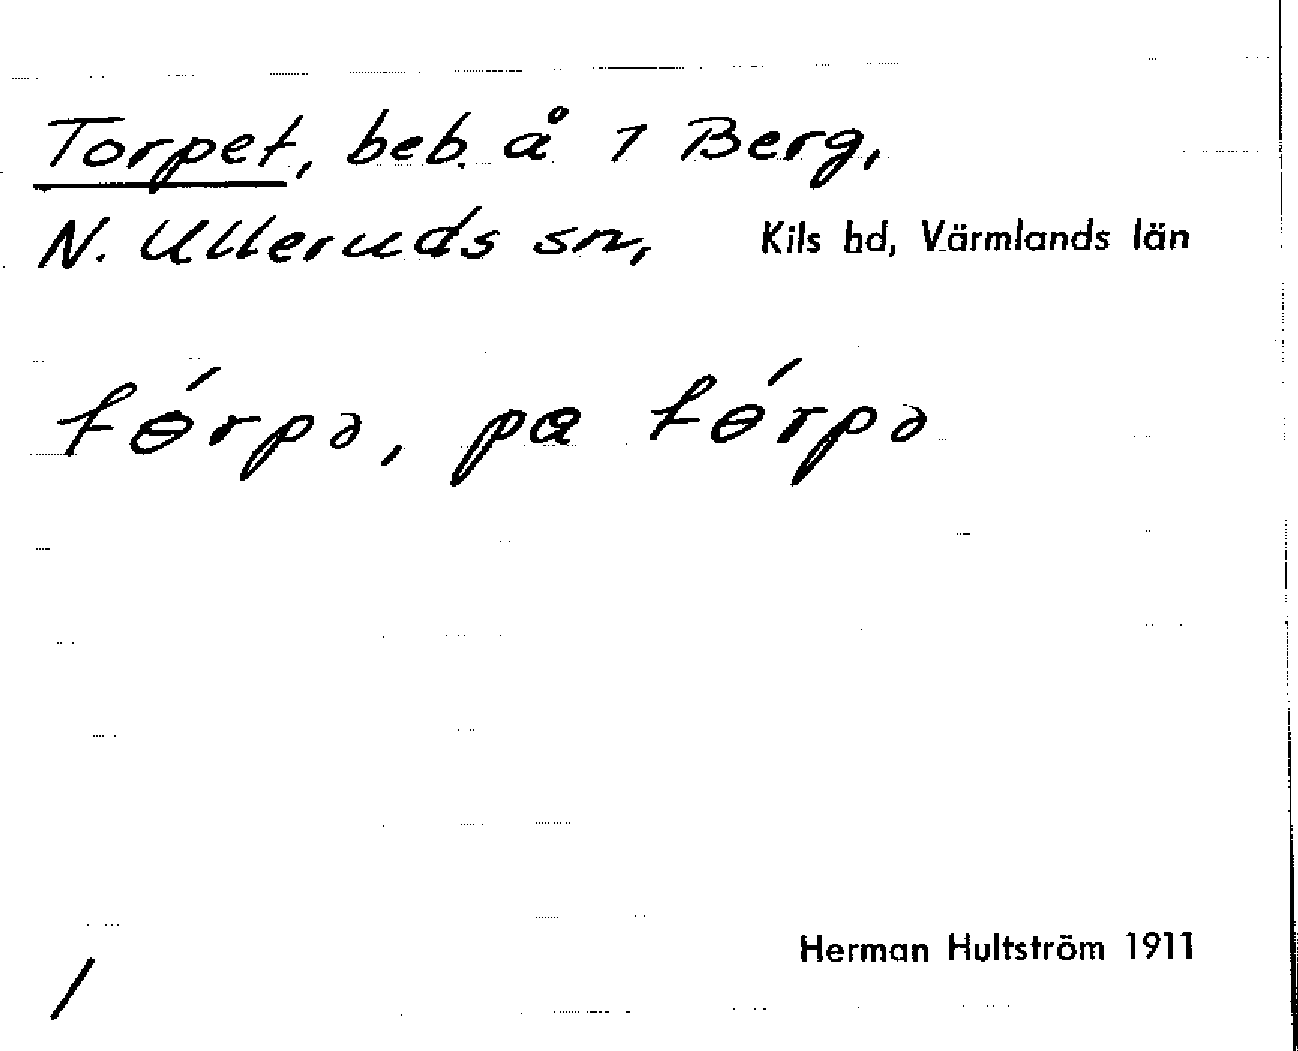 Torpet, beb. å 1 Berg,
N. Ulleruds sn, Kils hd, Värmlands län
tɵ́rpə, pa tɵ́rpə
Herman Hultström 1911
/